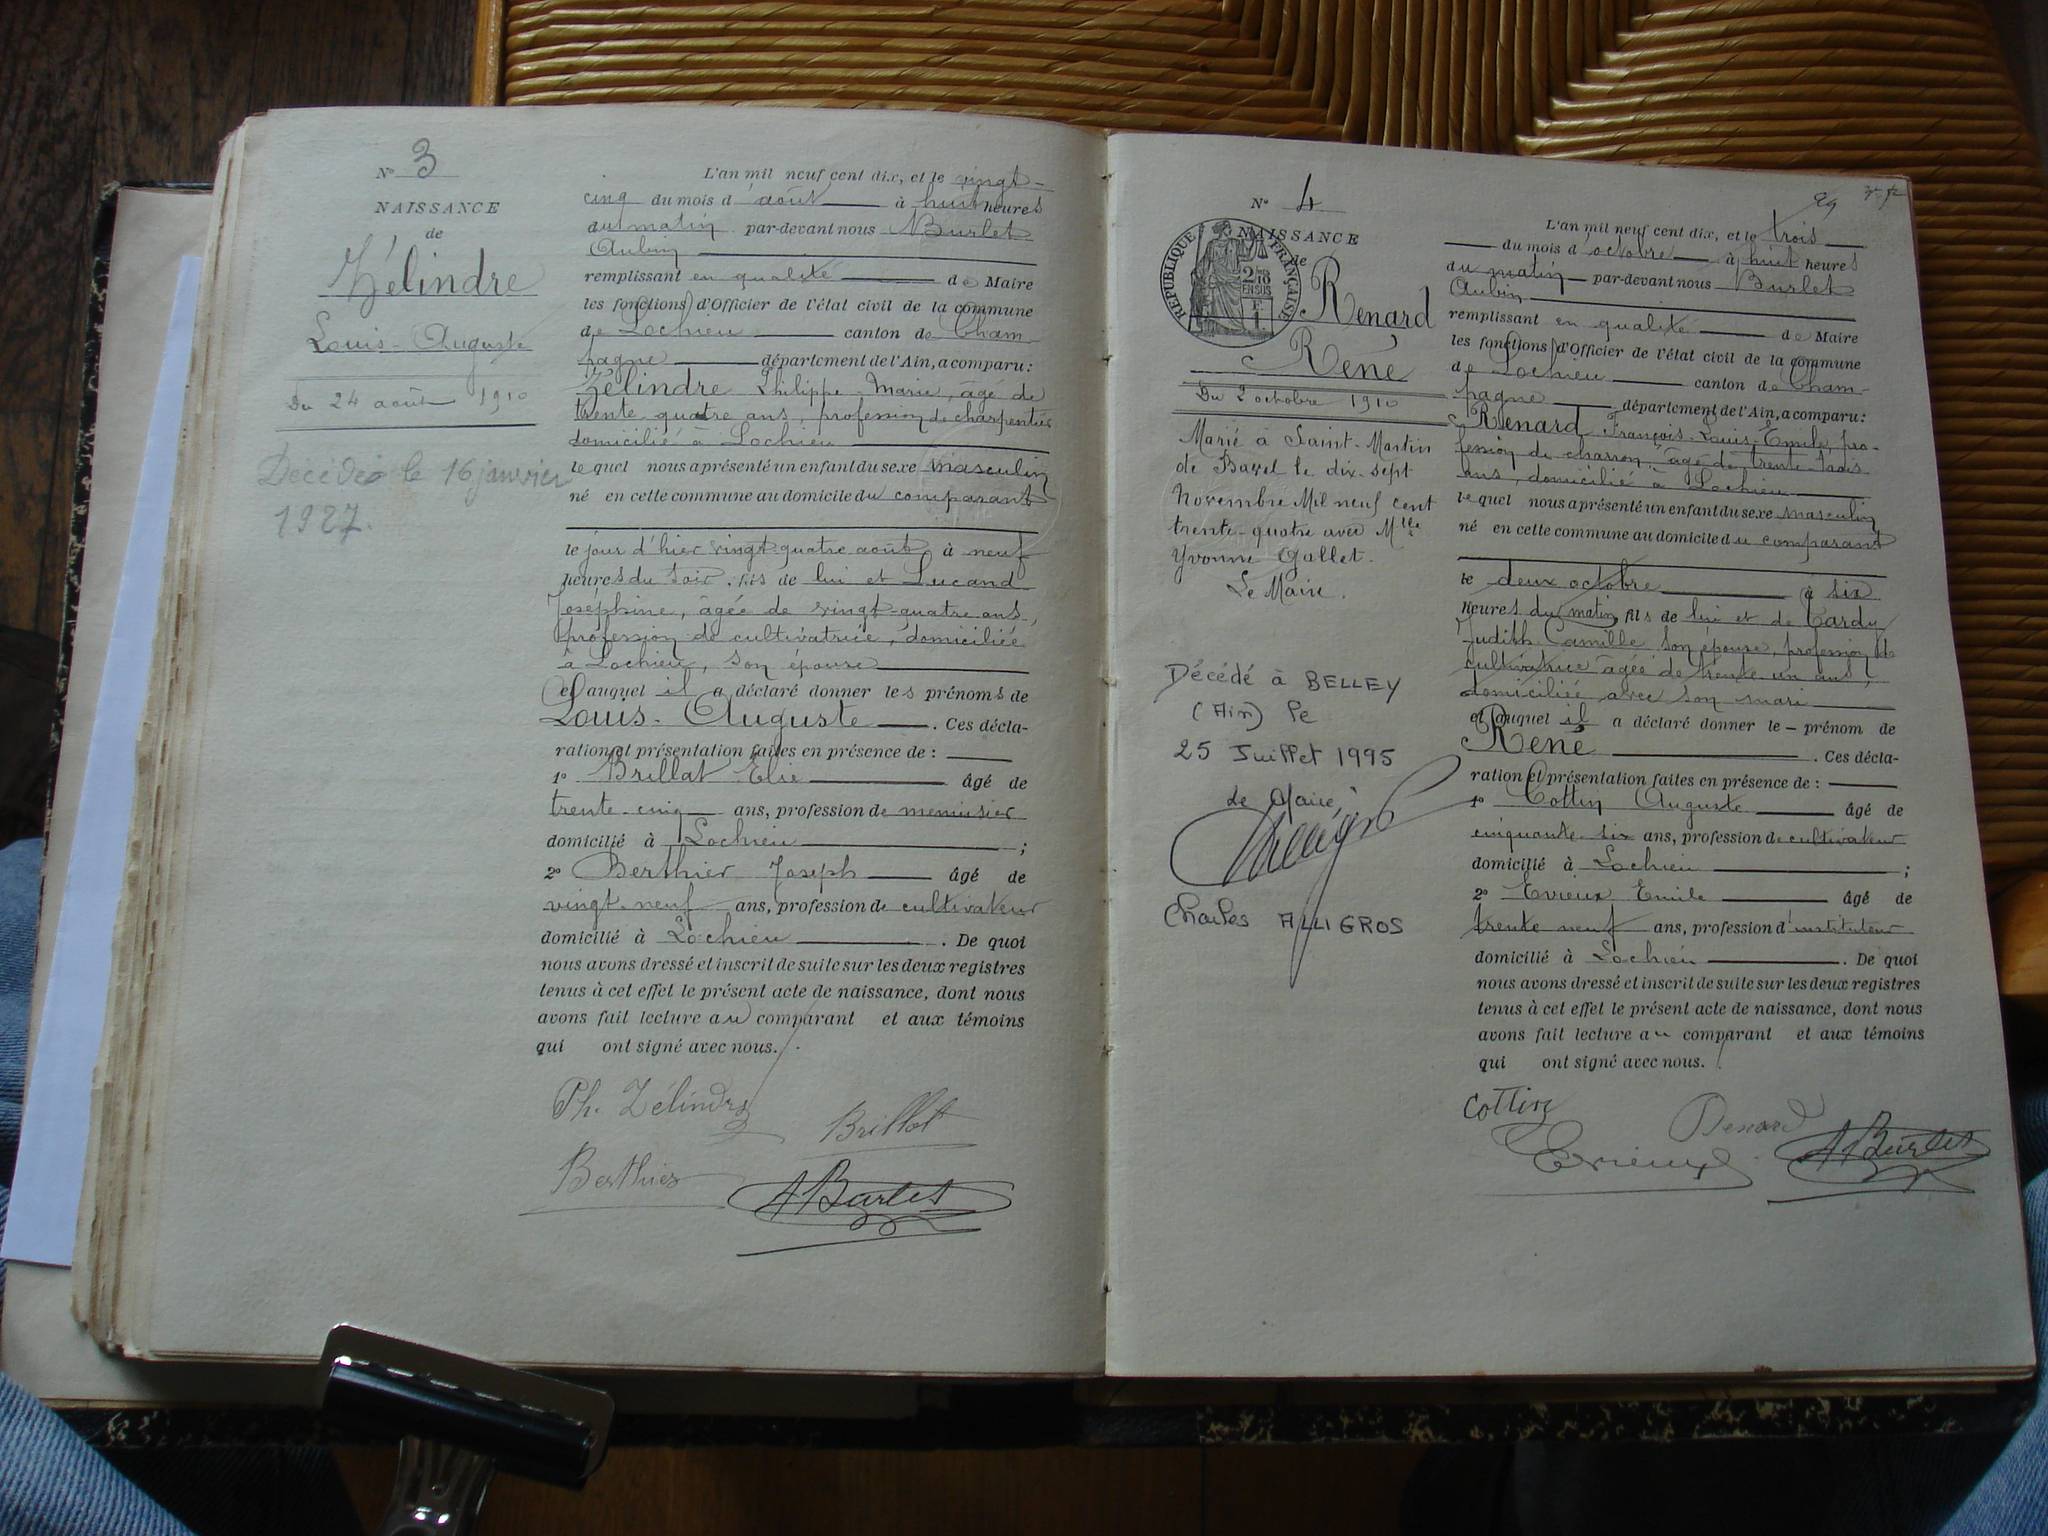 N° 3
NAISSANCE
de
Zélindre
Louis-Auguste
Du 24 août 1910
Décédé le 16 janvier
1927.
L'an mil neuf cent dix, et le vingt-
cinq du mois d'août à huit heures
du matin par-devant nous Burlet
Aubin
remplissant en qualité de Maire
les fonctions d'Officier de l'état civil de la commune
de Lochieu canton de Cham-
pagne département de l'Ain, a comparu:
Zélindre Philippe-Marie, âgé de
trente quatre ans, profession de charpentier
domicilié à Lochieu
lequel nous a présenté un enfant du sexe masculin
né en cette commune au domicile du comparant
le jour d'hier vingt-quatre août à neuf
heures du soir, fils de lui et Lucand
Joséphine, âgée de vingt-quatre ans,
profession de cultivatrice, domiciliée
à Lochieu, son épouse
et auquel il a déclaré donner les prénoms de
Louis-Auguste. Ces décla-
ration et présentation faites en présence de:
1° Brillat Elie âgé de
trente-cinq ans, profession de menuisier
domicilié à Lochieu;
2° Berthier Joseph âgé de
vingt-neuf ans, profession de cultivateur
domicilié à Lochieu. De quoi
nous avons dressé et inscrit de suite sur les deux registres
tenus à cet effet le présent acte de naissance, dont nous
avons fait lecture au comparant et aux témoins
qui ont signé avec nous.
Ph. Zélindre Brillat
Berthier A Burlet
N° 4
NAISSANCE
de
REPUBLIQUE FRANÇAISE
Renard
René
Du 2 octobre 1910
Marié à Saint-Martin
de Bavel le dix-sept
Novembre Mil neuf cent
trente-quatre avec Mlle
Yvonne Gallet.
Le Maire.
Décédé à BELLEY
(Ain) le
25 Juillet 1995
Le Maire,
Charles ALLIGROS
L'an mil neuf cent dix, et le trois
du mois d'octobre à huit heures
du matin par-devant nous Burlet
Aubin
remplissant en qualité de Maire
les fonctions d'Officier de l'état civil de la commune
de Lochieu canton de Cham-
pagne département de l'Ain, a comparu:
Renard François-Louis-Emile, pro-
fession de charron, âgé de trente-trois
ans, domicilié à Lochieu
lequel nous a présenté un enfant du sexe masculin
né en cette commune au domicile du comparant
le deux octobre à six
heures du matin, fils de lui et de Tardy
Judith Camille son épouse, profession de
cultivatrice âgée de trente un ans,
domiciliée avec son mari
et auquel il a déclaré donner le prénom de
René. Ces décla-
ration et présentation faites en présence de:
1° Cottin Auguste âgé de
cinquante-six ans, profession de cultivateur
domicilié à Lochieu;
2° Evieux Emile âgé de
trente neuf ans, profession d'instituteur
domicilié à Lochieu. De quoi
nous avons dressé et inscrit de suite sur les deux registres
tenus à cet effet le présent acte de naissance, dont nous
avons fait lecture au comparant et aux témoins
qui ont signé avec nous.
Cottin Renard
Evieux A Burlet